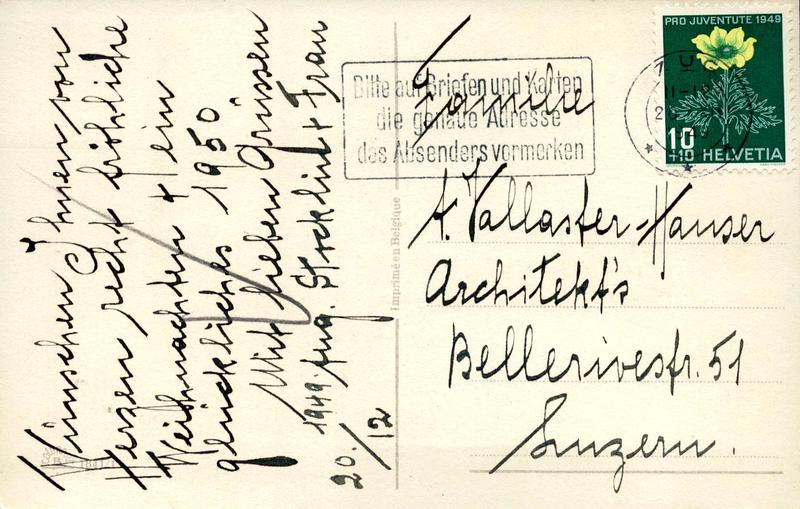 Wünschen Ihnen von
Herzen recht fröhliche
Weihnachten & ein
glückliches 1950
Mit lieben Grüssen
1949. Aug. Stocklin & Frau
20./12
Imprimé en Belgique
Bitte auf Briefen und Karten
die genaue Adresse
des Absenders vormerken
PRO JUVENTUTE 1949
10
+10 HELVETIA
Familie
A. Vallaster-Hauser
Architekt's
Bellerivestr. 51
Luzern.